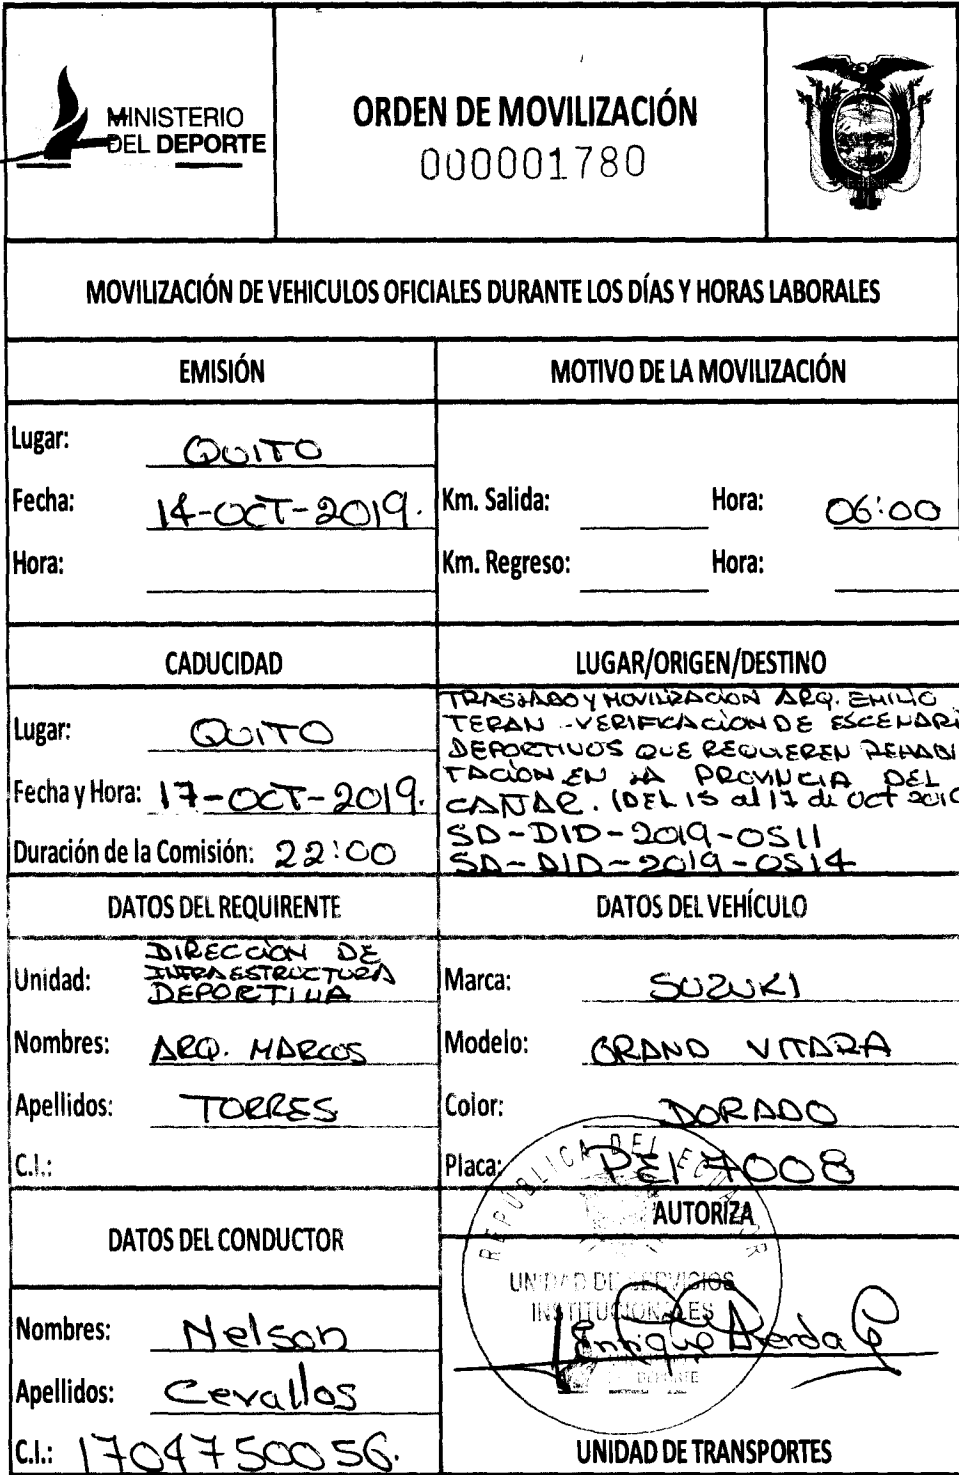 MINISTERIO
DEL DEPORTE
ORDEN DE MOVILIZACIÓN
000001780
MOVILIZACIÓN DE VEHICULOS OFICIALES DURANTE LOS DÍAS Y HORAS LABORALES
EMISIÓN
Lugar: QUITO
Fecha: 14-OCT-2019.
Hora:
MOTIVO DE LA MOVILIZACIÓN
Km. Salida: Hora: 06:00
Km. Regreso: Hora:
CADUCIDAD
Lugar: QUITO
Fecha y Hora: 17-OCT-2019.
Duración de la Comisión: 22:00
LUGAR/ORIGEN/DESTINO
TRASLADO Y MOVILIZACION ARQ. EMILIO
TERAN - VERIFICACIÓN DE ESCENARI
DEPORTIVOS QUE REQUIEREN REHABI
TACIÓN EN LA PROVINCIA DEL
CAÑAR. (DEL 15 al 17 de Oct 2019
SD-DID-2019-0511
SD-DID-2019-0514
DATOS DEL REQUIRENTE
Unidad: DIRECCIÓN DE
INFRAESTRUCTURA
DEPORTIVA
Nombres: ARQ. MARCOS
Apellidos: TORRES
C.I.:
DATOS DEL VEHÍCULO
Marca: SUZUKI
Modelo: GRAND VITARA
Color: DORADO
Placa: PEI 7008
DATOS DEL CONDUCTOR
Nombres: Nelson
Apellidos: Cevallos
C.I.: 1704750056.
AUTORIZA
REPÚBLICA DEL ECUADOR
UNIDAD DE SERVICIOS
INSTITUCIONALES
Enrique
DEPORTE
UNIDAD DE TRANSPORTES